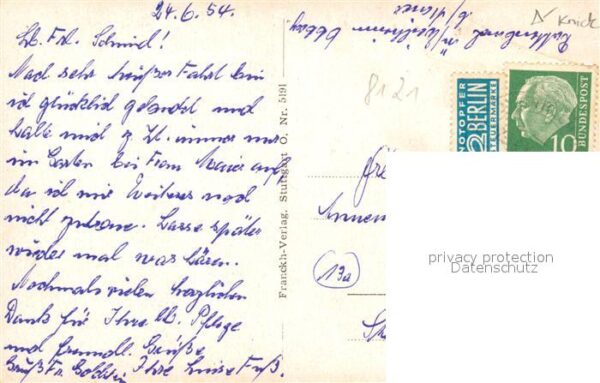 24.6.54.
Lb. Frl. Schmid!
Nach sehr heißer Fahrt bin
ich glücklich gelandet und
halte mich z. Zt. immer nur
im Garten bei Frau Maier auf,
da ich mir Weiteres noch
nicht zutraue. Lasse später
wieder mal was hören.
Nochmals vielen herzlichen
Dank für Ihre lb. Pflege
und freundl. Grüße
Ihre Luise Fuß.
Gruß Fr.
Franckh-Verlag, Stuttgart O. Nr. 5191
8121
NOTOPFER
2 BERLIN
STEUERMARKE
DEUTSCHE BUNDESPOST
10
13a
privacy protection
Datenschutz